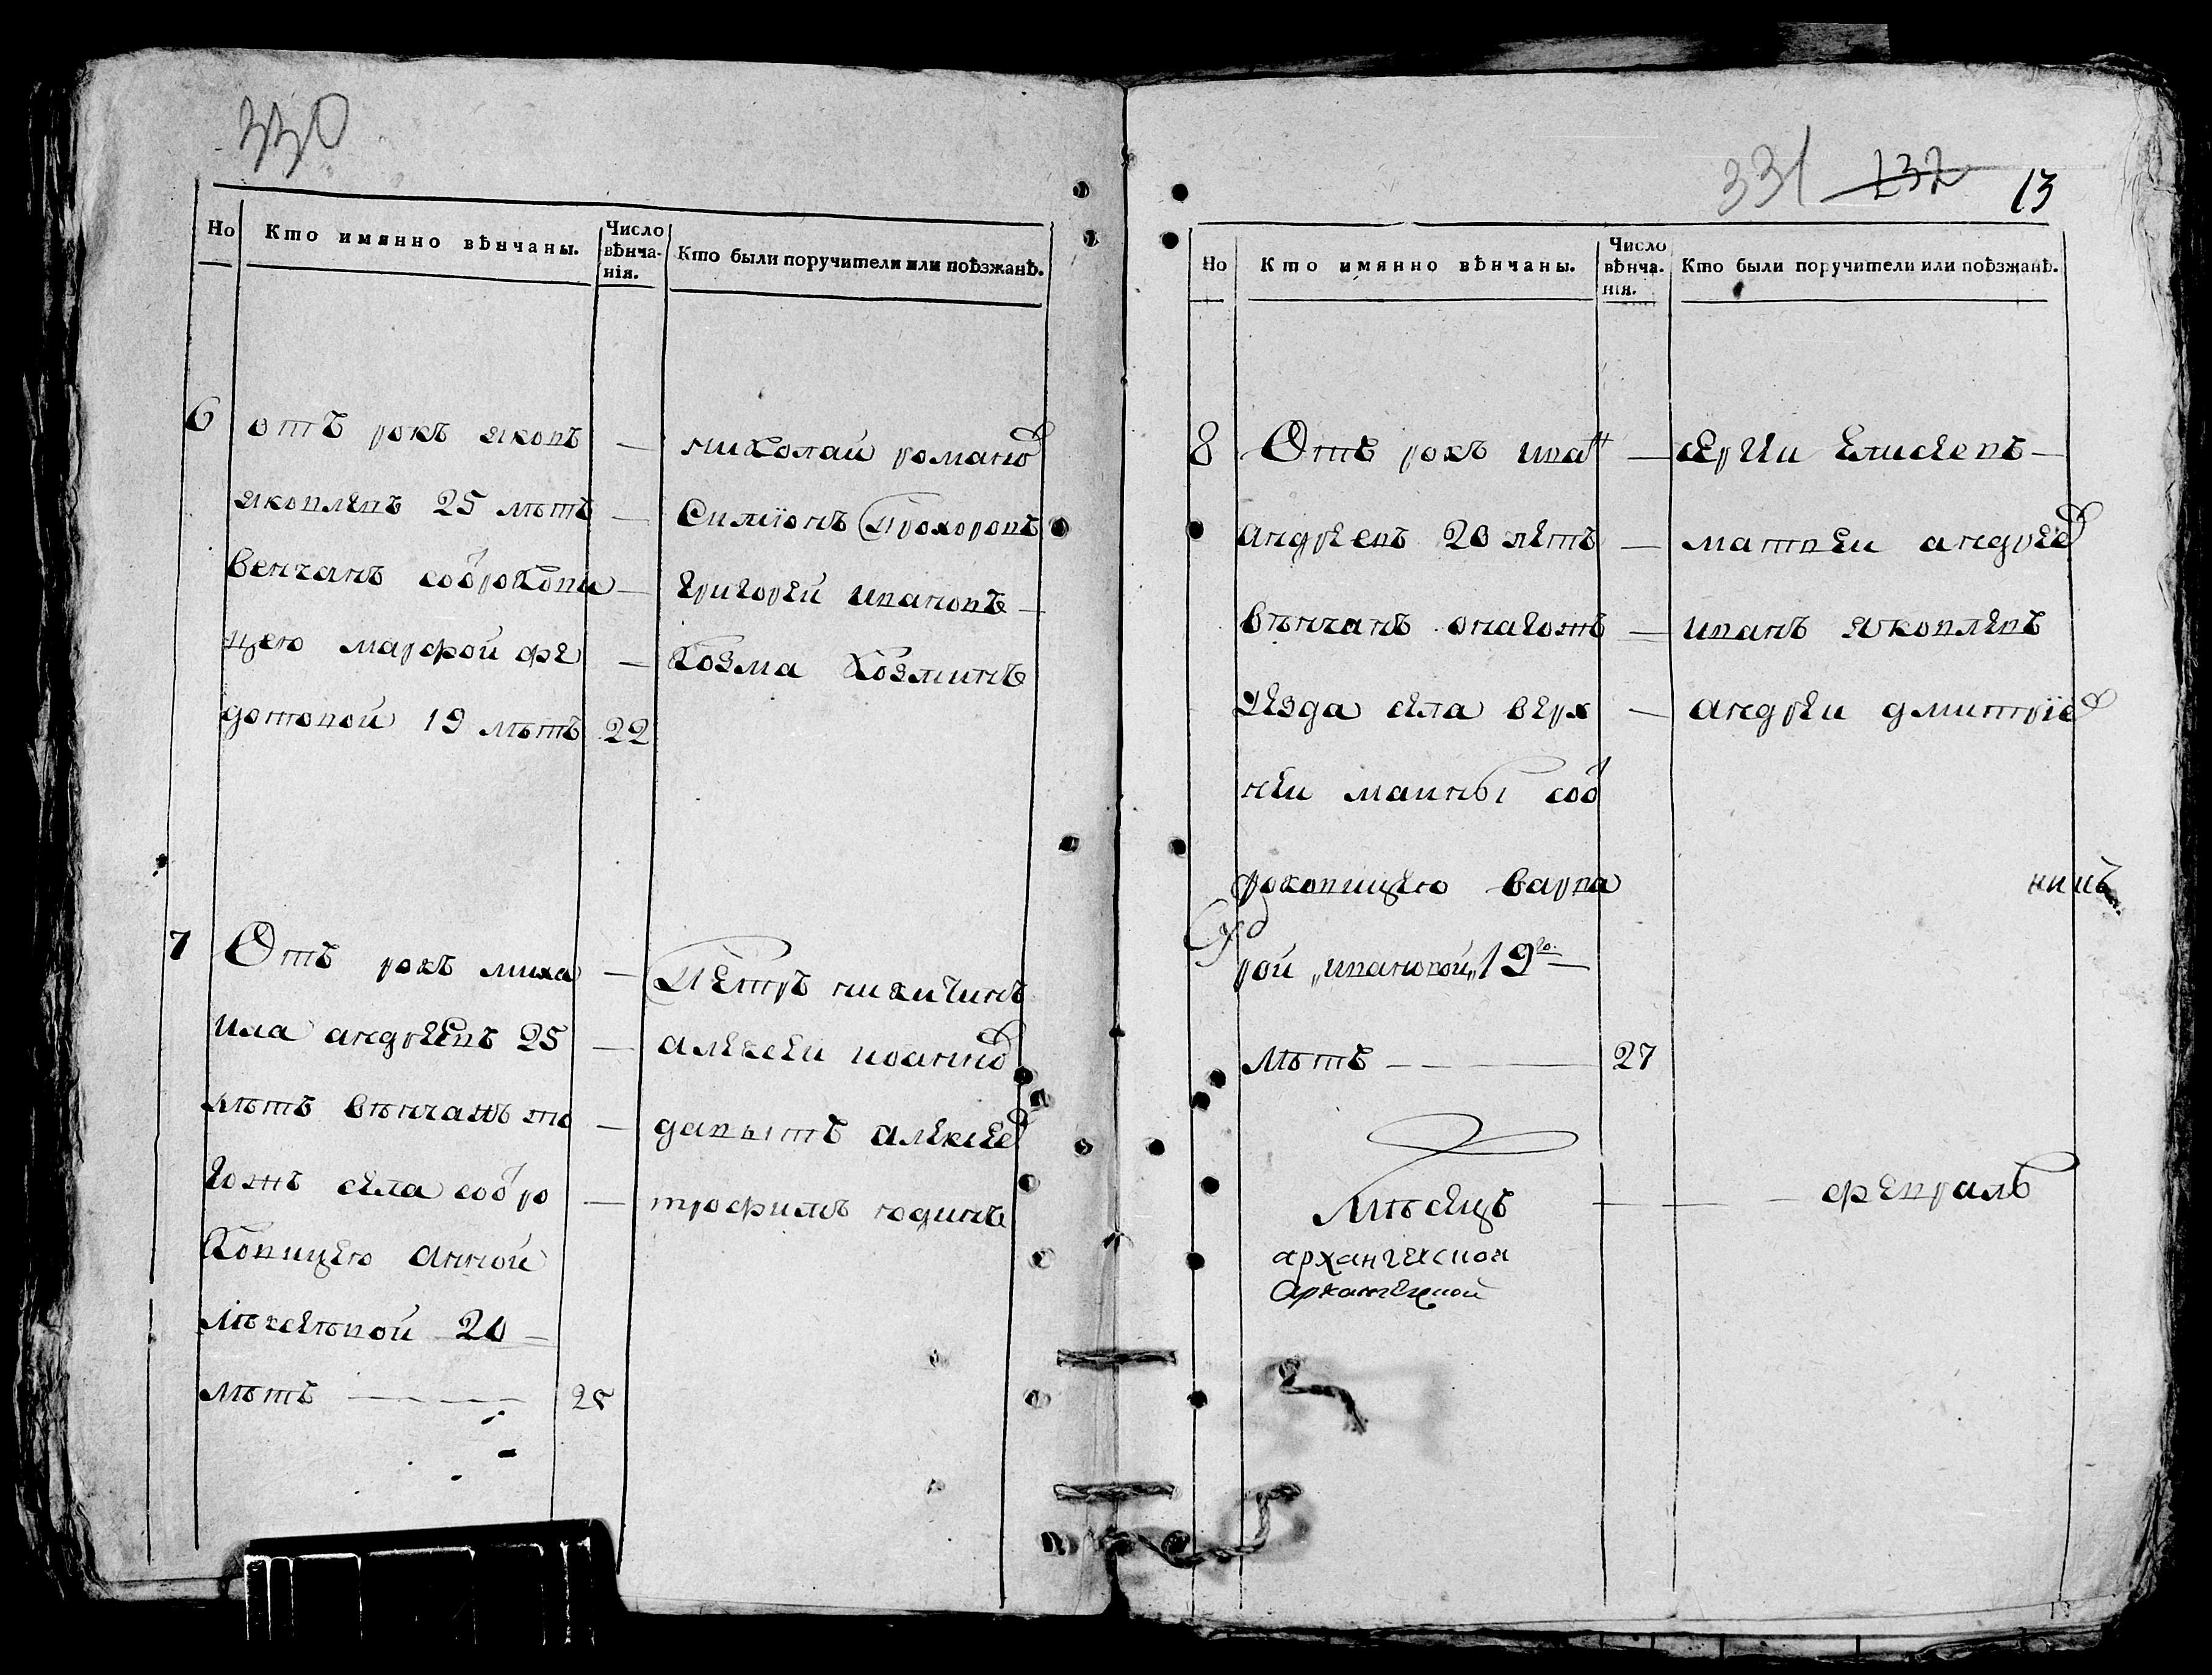 330
Но
Кто имянно вѣнчаны.
Число вѣнча-
нія.
Кто были поручители или поѣзжанѣ.
6
отъ рокъ яковъ
яковлевъ 25 лѣтъ
венчанъ соброкови
цею марфой фе
дотовой 19 лѣтъ 22
— николай романо
— Симіонъ Прохоровъ
— григорей ивановъ —
— Козма Козминъ
7
Отъ рокъ миха
ила андреевъ 25
лѣтъ вѣнчанъ то
гожъ села собро
ковицею анной
20 —
лѣтъ — — — — 25
— Петръ никитинъ
— алексеи иоанно
— давытъ алексее
— трофимъ юдинъ
331 132 13
Но
Кто имянно вѣнчаны.
Число
вѣнча.
нія.
Кто были поручители или поѣзжанѣ.
8
Отъ рокъ иван
андреевъ 20 летъ
вѣнчанъ онагожъ
уезда села верх
неи маины соб
роковицею варва
рой „ивановой„ 19
лѣтъ — — — 27
— сергеи елисеевъ —
— матвеи андрее
— иванъ яковлевъ
— андреи дмитріе
нинъ
Мѣсецъ — — — февраль
архангелской